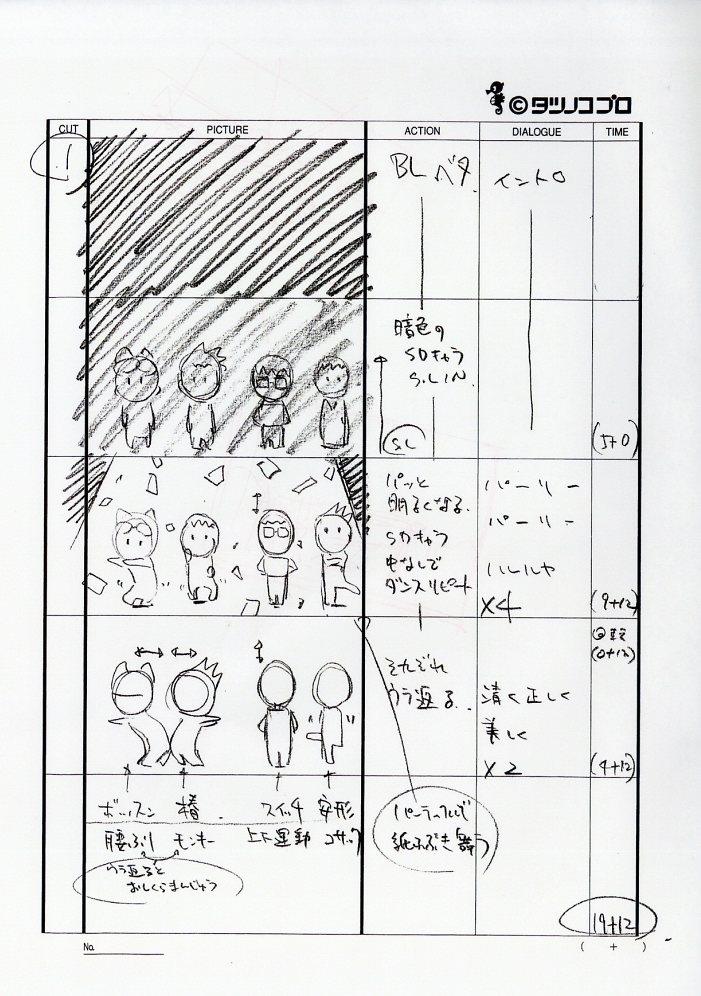 ©タツノコプロ
CUT
PICTURE
ACTION
DIALOGUE
TIME
1
BLベタ
イントロ
暗色の
SDキャラ
S.L IN
SL
(5+0)
パッと
明るくなる
SDキャラ
中なしで
ダンスリピート
パーリー
パーリー
ハレルヤ
×4
(9+12)
(0+12)
それぞれ
ウラ返る
清く正しく
美しく
×2
(4+12)
ボッスン
椿
スイッチ
安形
腰ふり
モンキー
上下運動
コサック
ウラ返ると
おしくらまんじゅう
紙ふぶき舞う
19+12
No.
( + )